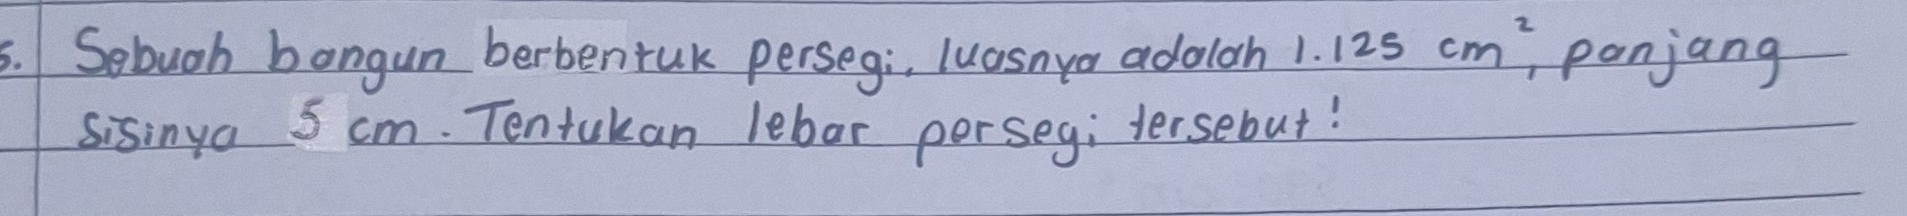 5. Sebuah bangun berbentuk persegi, luasnya adalah 1.125 cm², panjang
sisinya 5 cm. Tentukan lebar persegi tersebut!